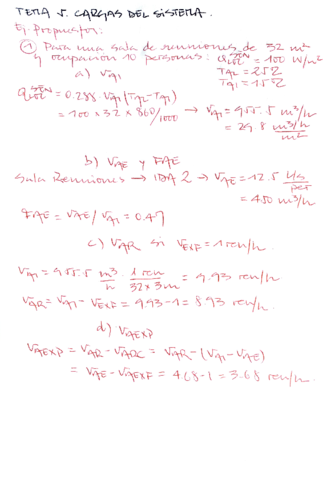 TEMA 5. CARGAS DEL SISTEMA.
Ej. Propuestos:
① Para una sala de reuniones de 32 m²
y ocupación 10 personas: q̇ SEN LOC = 100 W/m²
a) V̇A1
TA2 = 25ºC
TA1 = 15ºC
q̇ SEN LOC = 0.288 · V̇A1 (TA2 - TA1)
= 100 × 32 × 860/1000 → V̇A1 = 955.5 m³/h
= 29.8 m³/h/m²
b) V̇AE y FAE
Sala Reuniones → IDA 2 → V̇AE = 12.5 l/s/per
= 450 m³/h
FAE = V̇AE / V̇A1 = 0.47
c) V̇AR si V̇EXF = 1 ren/h.
V̇A1 = 955.5 m³/h · 1 ren / 32 × 3 m = 9.93 ren/h.
V̇AR = V̇A1 - V̇EXF = 9.93 - 1 = 8.93 ren/h.
d) V̇AEXP
V̇AEXP = V̇AR - V̇ARC = V̇AR - (V̇A1 - V̇AE)
= V̇AE - V̇AEXF = 4.68 - 1 = 3.68 ren/h.